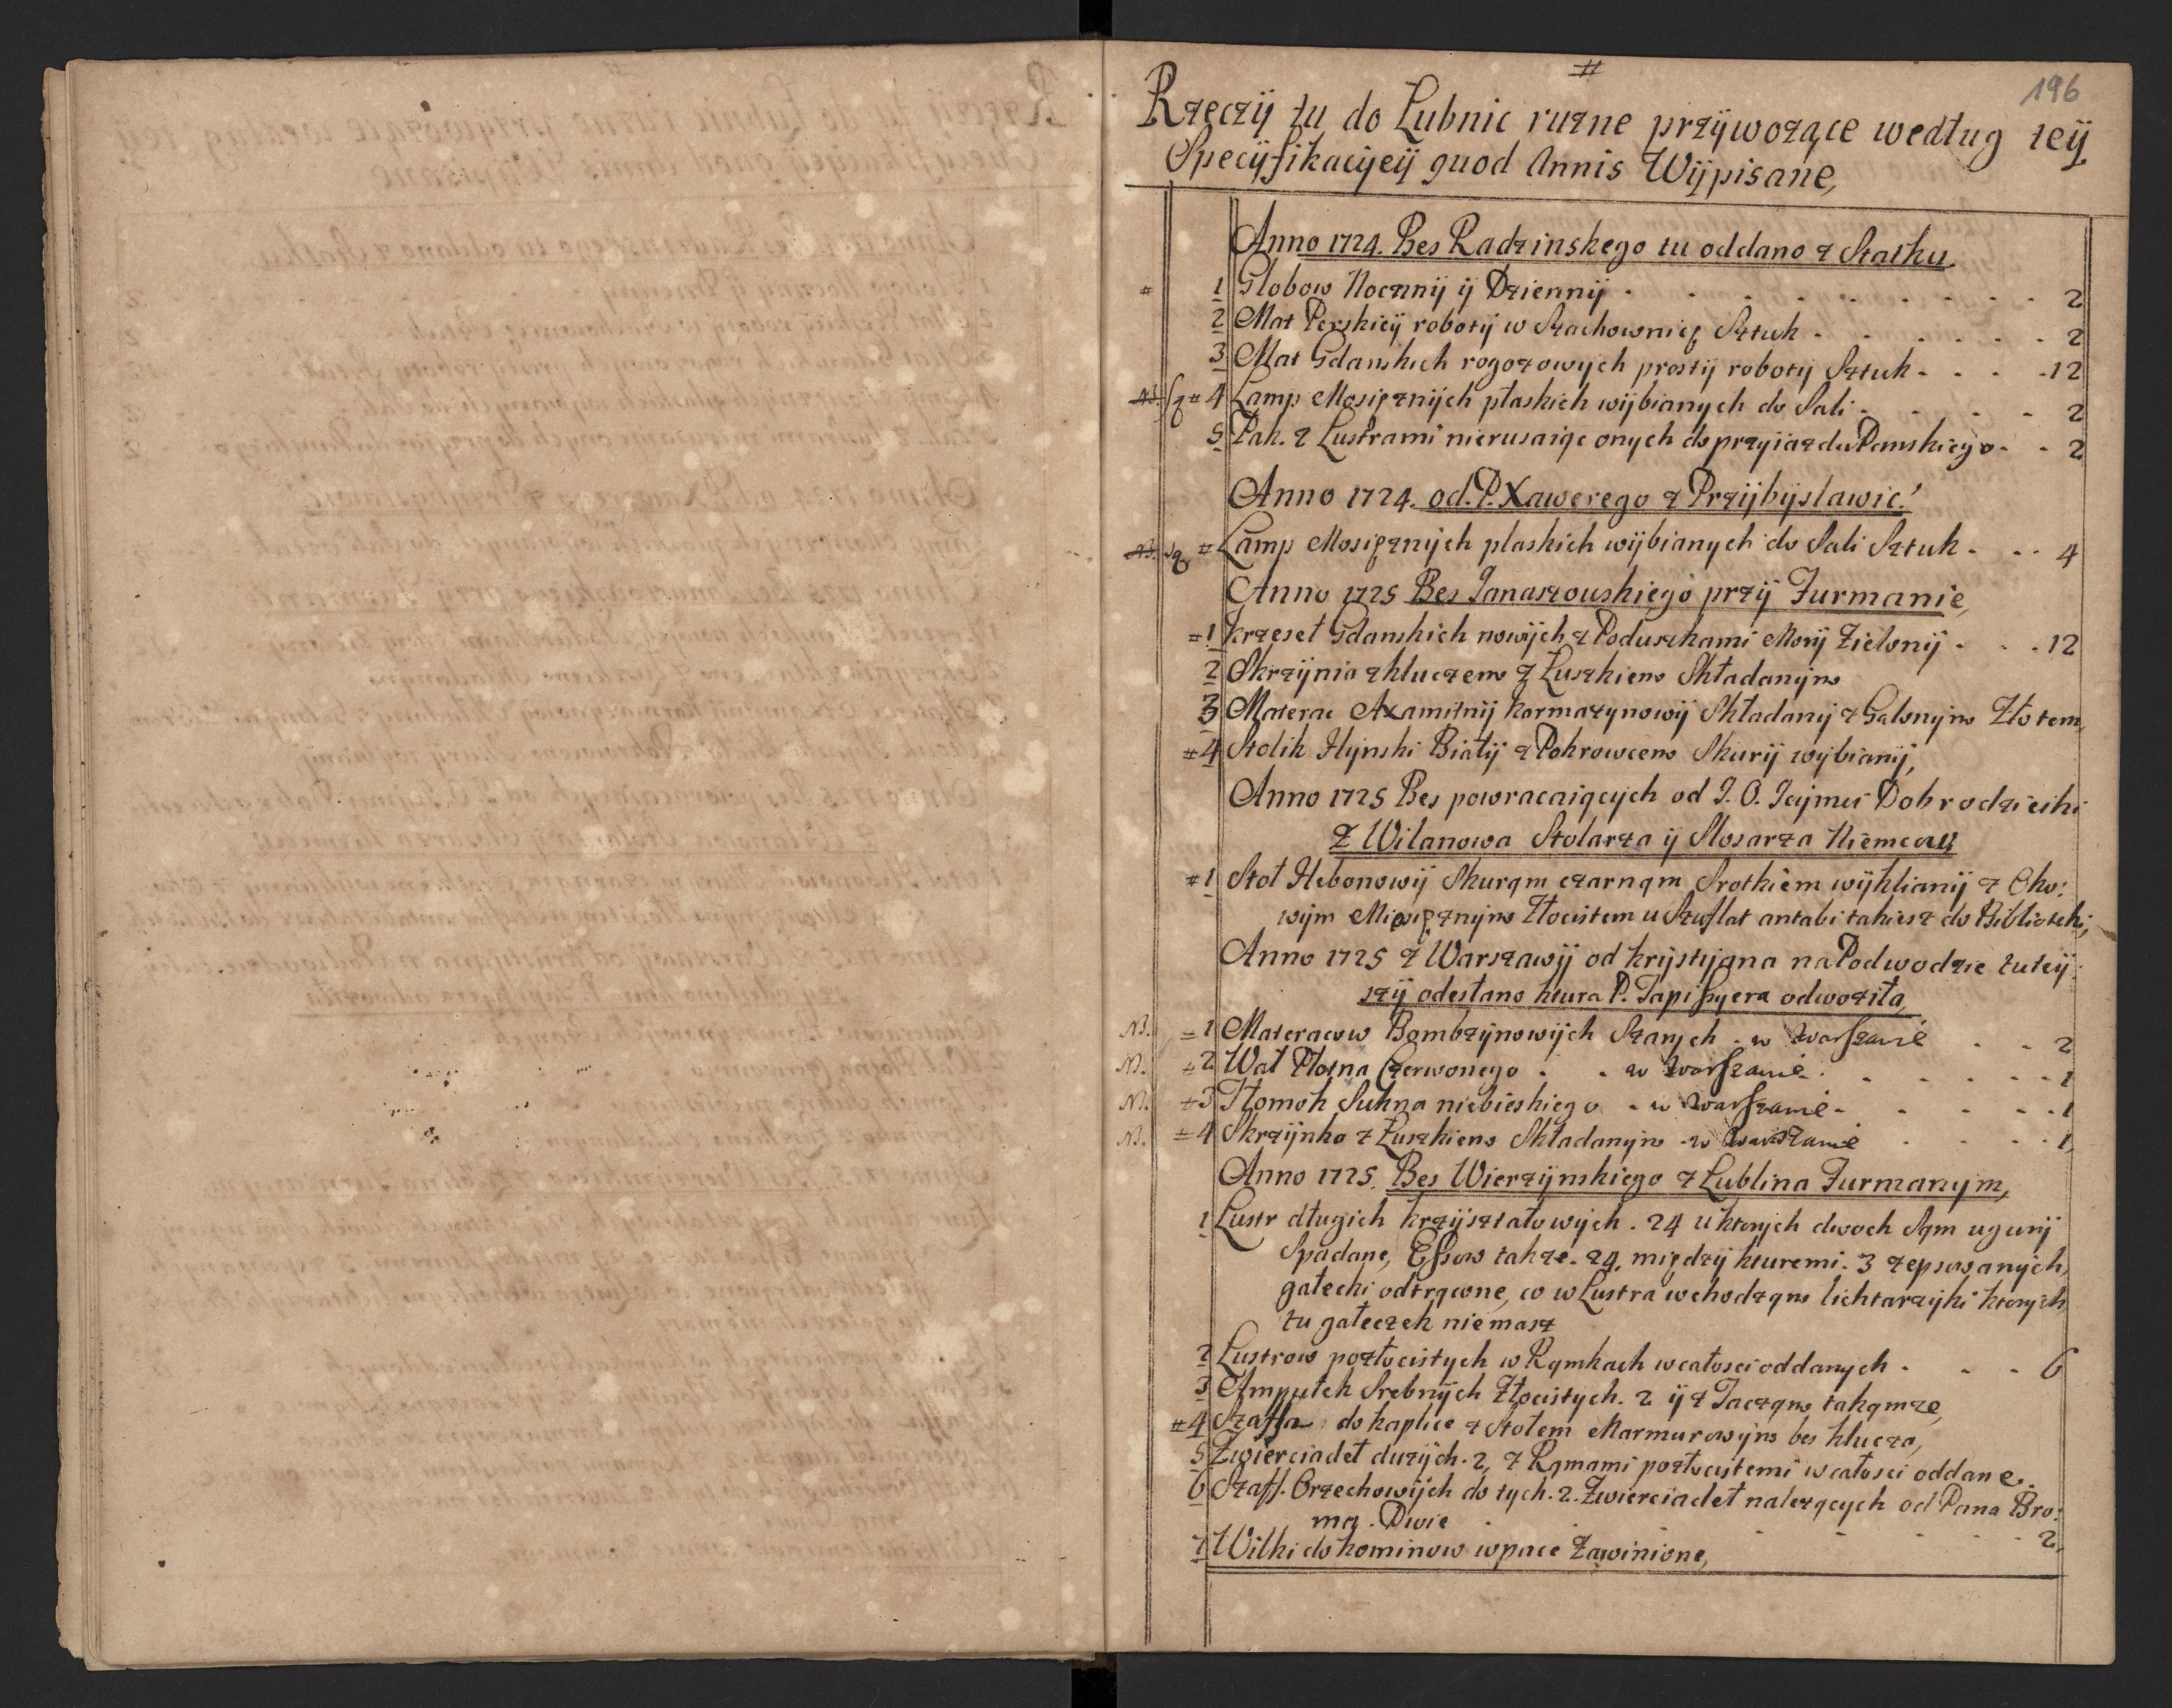 #
196
Rzeczÿ tu do Łubnic ruzne przÿwozące według teÿ
Specÿfikacÿeÿ quod Annis Wÿpisane,
Anno 1724. Bes Radzinskego tu oddano z Statku
# 1 Globow Nocznÿ ÿ Dziennÿ . . . 2
2 Mat Perskieÿ robotÿ w Szachownicę Sztuk . . . 2
3 Mat Gdanskich rogozowych prostÿ robotÿ Sztuk . . . 12
NB. Są # 4 Lamp Mosięznÿch płaskich wÿbianych do Sali . . . 2
5 Pak. z Lustrami nierusaiąc onych do przyiazdu Panskiego . . 2
Anno 1724. od. P. Xawerego z Przÿbÿslawic.
NB. Są # Lamp Mosięznÿch płaskich wÿbianych do Sali Sztuk . . . 4
Anno 1725 Bes Janaszouskiego przÿ Furmanie,
# 1 Krzeseł Gdanskich nowÿch z Poduszkami Morÿ Zielonÿ . . . 12
2 Skrzÿnia z kluczem z Łuszkiem Składanÿm
3 Materac Axamitnÿ Karmazynowÿ Składanÿ z Galonÿm Złotem,
# 4 Stolik Hÿnski Białÿ z Pokrowcem Skurÿ wybianÿ,
Anno 1725 Bes powracaiących od J. O. Jeÿmci Dobrodzieiki
Z Wilanowa Stolarza ÿ Slosarza Niemcow
# 1 Stoł Hebonowÿ Skurąm czarnąm Srotkiem wÿklianÿ z Oko:
wÿm Miosięznÿm Złocistem u Szuflat antabi takiesz do Biblioteki,
Anno 1725 z Warszawÿ od Krÿstÿana na Podwodzie tuteÿ:
szÿ odesłano ktura P. Tapissyera odwoziła,
NB. # 1 Materacow Bombzÿnowÿch Starych . w Warszawie . . 2
NB. # 2 Wał Płotna Czerwonego . . w Warszawie . . . 1
NB. # 3 Tłomok Sukna niebieskiego . w Warszawie . . . 1
NB. # 4 Skrzÿnka z Łuszkiem Składanÿm . w Warszawie . . . 1,
Anno 1725. Bes Wierzÿnskiego z Lublina Furmanym,
1 Lustr długich krzÿształowÿch . 24 u ktorych dwoch Sąm ugurÿ
Spadane, Essow takze . 24. międzÿ kturemi . 3 zepsowanÿch,
gałecki odtrącone, co w Lustra wchodząm lichtarzÿki ktorÿch
tu gałeczek nie masz
2 Lustrow pozłocistych w Rąmkach w całosci oddanych . . . 6
3 Ampułek Srebnÿch Złocistych . 2 ÿ z Taczqm takqmze,
# 4 Szaffa do kaplice z Stołem Marmurowÿm bes klucza,
5 Zwierciadeł duzÿch . 2, z Rąmami pozłocistemi w całosci oddane.
6 Szaff. Orzechowÿch do tych . 2. Zwierciadeł nalezących od Pana Bro:
ma . Dwie . . . 2,
7 Wilki do kominow w pace Zawinione,